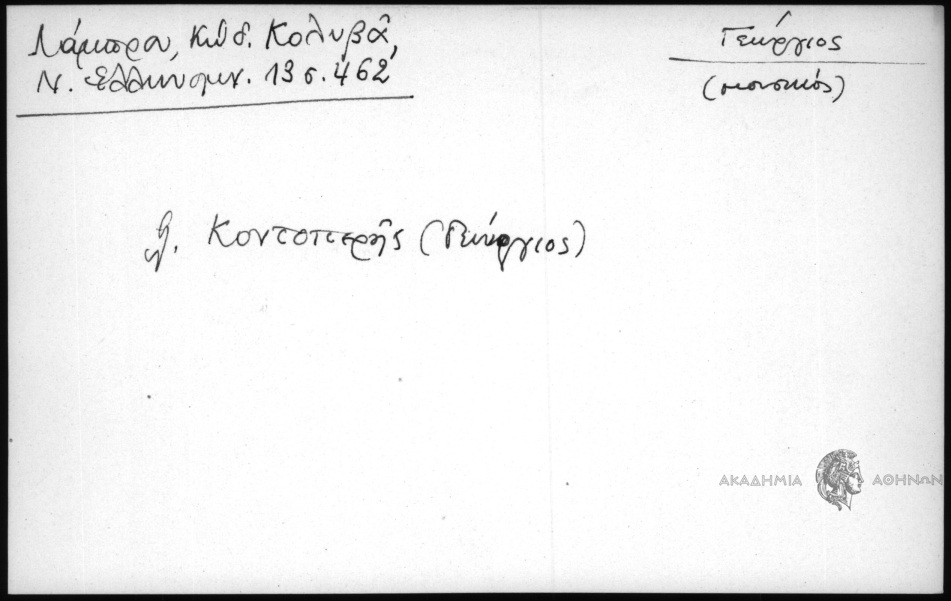 Λάμπρου, Κώδ. Κολυβᾶ,
Ν. Ἑλληνομν. 13 σ. 462
Γεώργιος
(μουσικός)
βλ. Κοντοπετρῆς (Γεώργιος)
ΑΚΑΔΗΜΙΑ ΑΘΗΝΩΝ